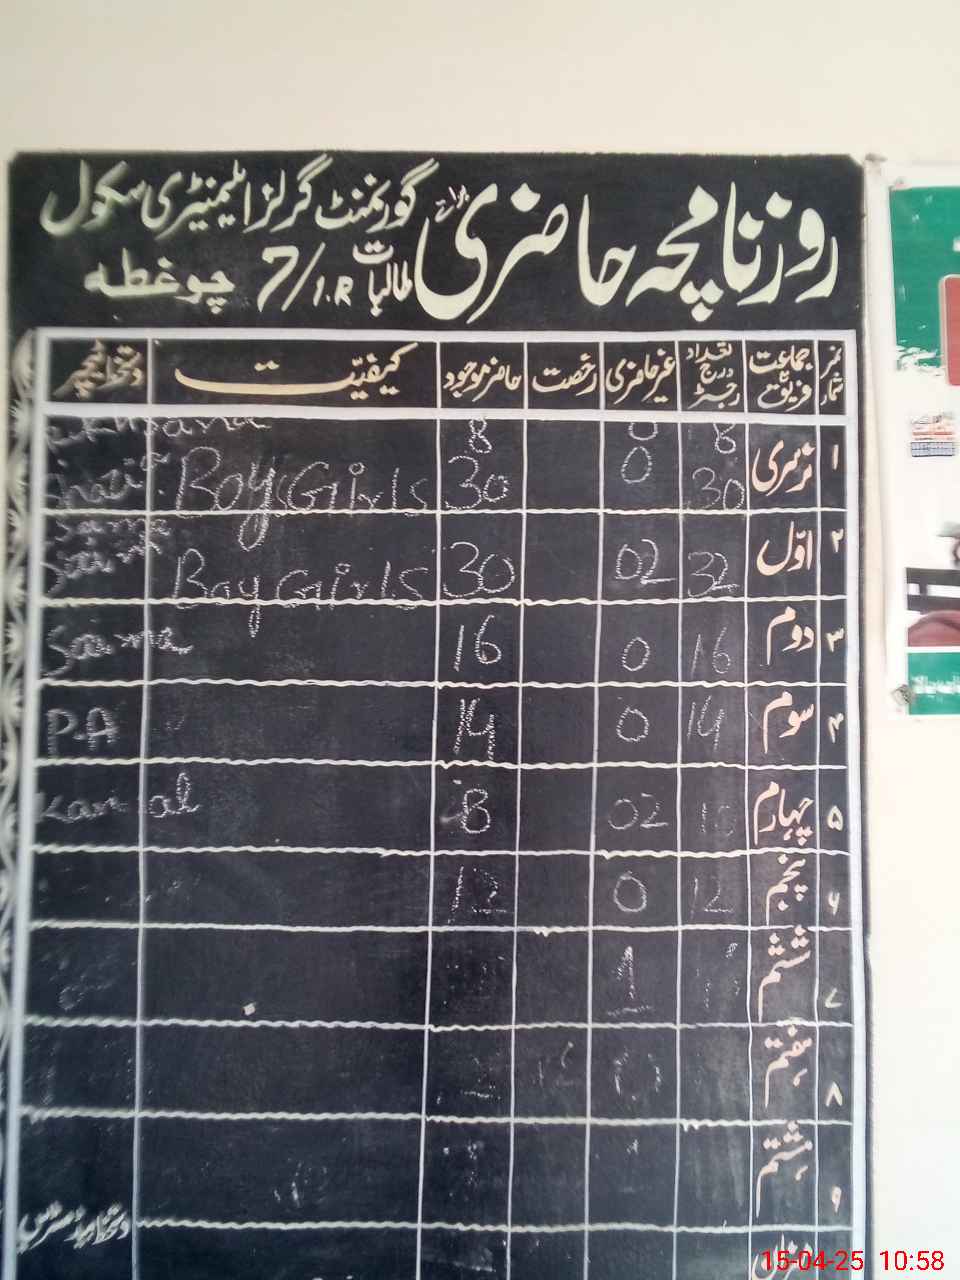 روزنامچہ حاضری برائے طالبات گورنمنٹ گرلز ایلیمنٹری سکول
7/1.R چوغطہ
نمبر شمار جماعت یا فریق تعداد درج رجسٹر غیر حاضری رخصت حاضر موجود کیفیّت دستخط انچارج
8 0 8
۱ نرسری 30 0 30 Boys Girls Shazia
۲ اوّل 32 02 30 Boy Girls Saima
۳ دوم 16 0 16 Saima
۴ سوم 14 0 14 P.A
۵ چہارم 10 02 8 Kanwal
۶ پنجم 12 0 12
۷ ششم 1
۸ ہفتم
۹ ہشتم
میزان دستخط ہیڈ مسٹرس
15-04-25 10:58